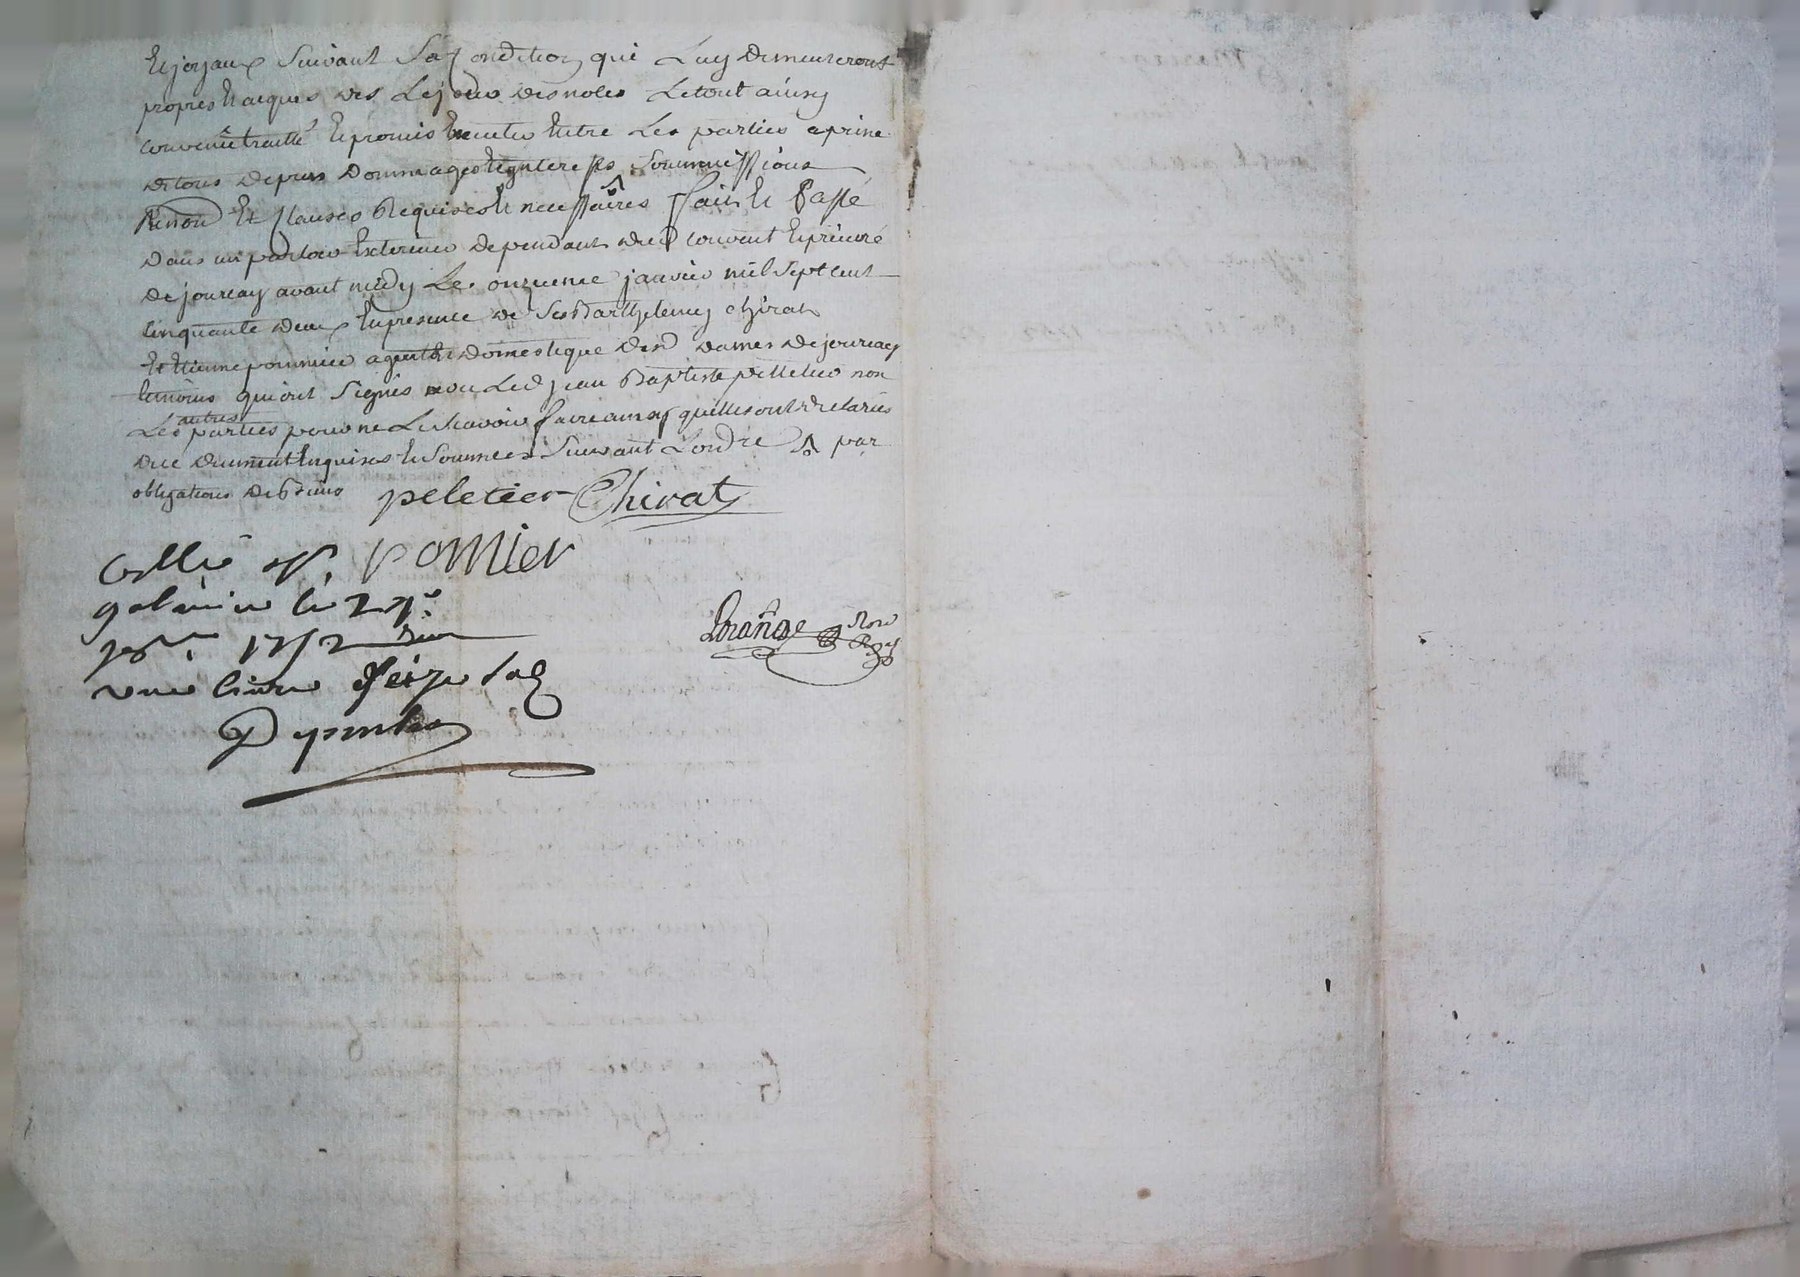 et joyaux suivant sa condition qui luy demeureront
propres et acquis dès le jour des noces le tout ainsy
convenu traitté et promis executer entre les parties a peine
de tous depens dommages et interests soummissions
renon et clauses requises et necessaires fait et passé
dans un parloir exterieur dependant dud couvent et prieuré
de jourcay avant midy le onzieme janvier mil sept cent
cinquante deux en presence de srs Barthelemy chirat
et Etienne pommier agent et domestique desd dames de jourcay
temoins qui ont signés avec led jean Baptiste pelletier non
les autres parties pour ne le scavoir faire ainsy qu'elles ont declarés
de ce duement enquises et sommées suivant l'ordre par
obligations de biens peletier Chirat
pomier
galmier le
1752
une livre seize sols